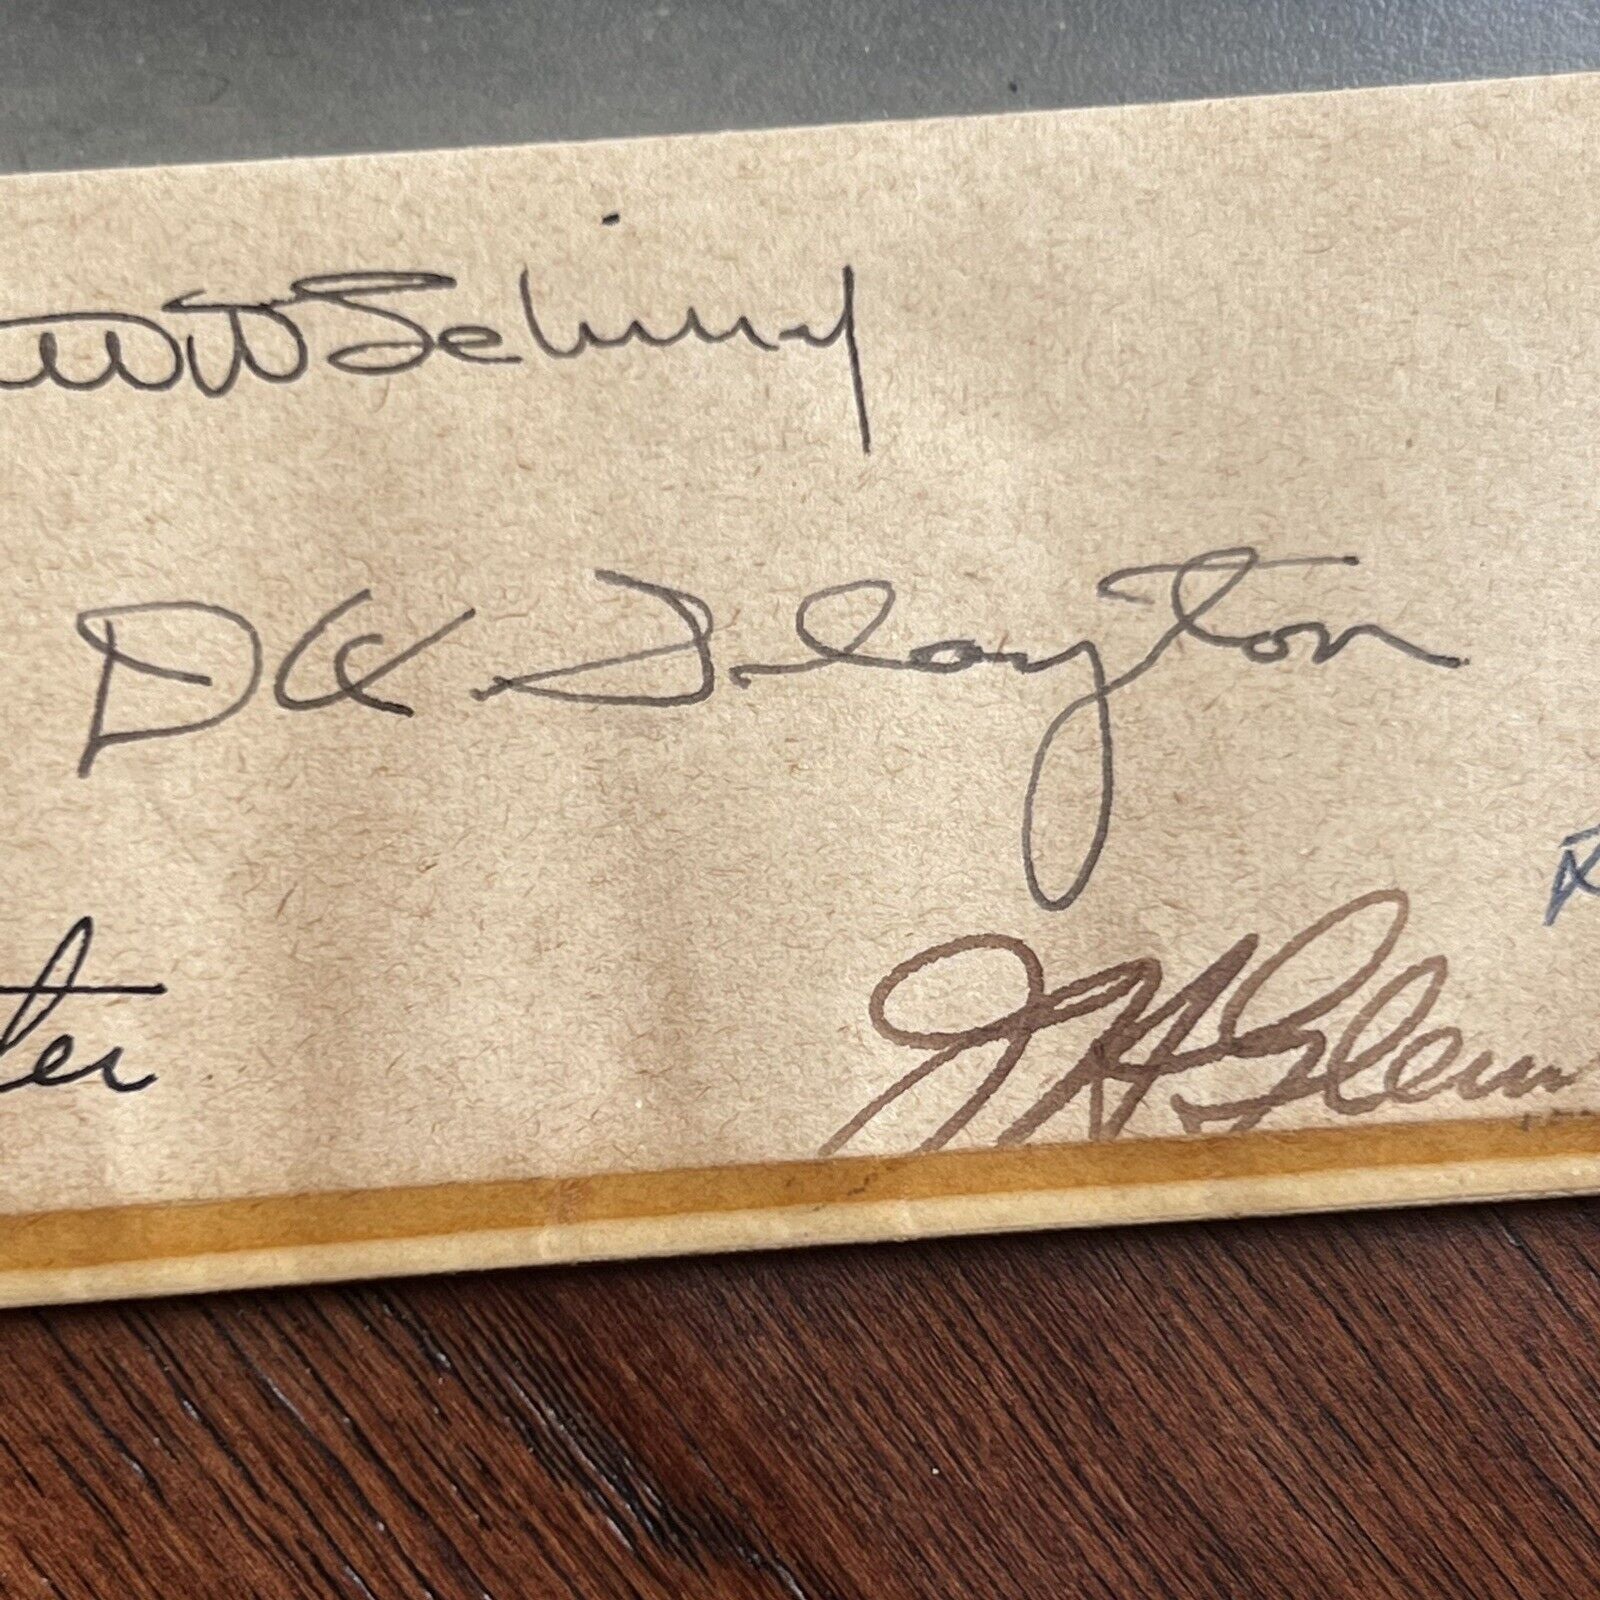 Schirra
DK Slayton
ter
JH Glenn